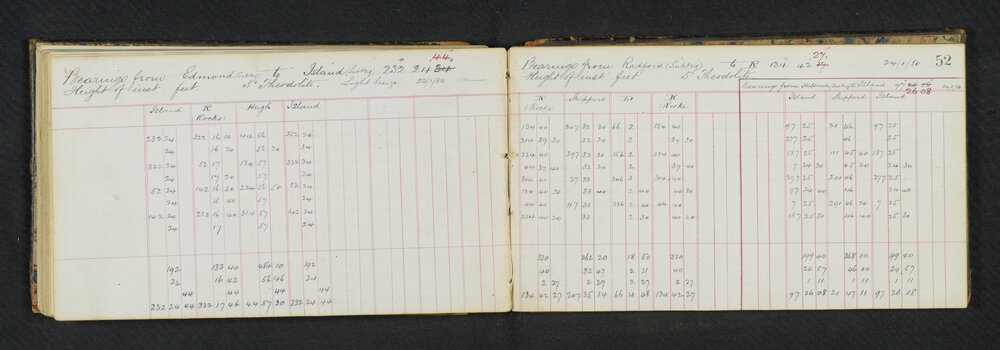 44
Bearings from Edmond (Subtry) to Island (Subtry) 232 24 34
Height of inst feet. 5" Theodolite. Light breeze. 22/1/80
Island R Hugh Island
(Rooks)
232 24 322 16 10 56 232 24
24 16 20 56 20 24
322 24 52 17 134 57 322 24
24 17 20 57 24
52 24 142 16 30 224 56 50 52 24
24 16 40 57 24
142 24 232 16 40 314 57 142 24
24 17 57 24
192 133 40 454 10 192
24 16 42 56 46 24
44 44 44 44
232 24 44 322 17 46 44 57 30 232 24 44
27 52
Bearings from Radford (Subtry) to R 134 42 24/1/80
Height of inst feet 5" Theodolite
Bearings from to Island 97 26 08
R Sheppard R
(Rooks) (Rooks)
134 40 207 32 30 66 2 134 40
314 39 30 32 20 2 39 30
224 40 297 32 30 156 2 224 40
44 39 40 32 20 2 39 40
314 40 27 33 246 3 314 40
134 40 30 33 40 2 40 40 30
44 40 117 33 336 2 40 44 40
224 40 20 33 2 30 40 20
320 262 20 18 50 320
40 32 47 2 21 40
2 27 2 27 2 27 2 27
134 42 27 207 35 14 66 4 48 134 42 27
Island Sheppard Island
97 25 21 46 97 25
277 25 46 25
187 25 111 45 40 187 25
7 24 30 45 20 24 30
277 25 201 46 277 25
97 24 40 46 24 40
7 25 291 46 20 7 25
187 25 30 46 40 25 30
199 40 368 00 199 40
24 57 46 00 24 57
1 11 1 11 1 11
97 26 08 21 47 11 97 26 08